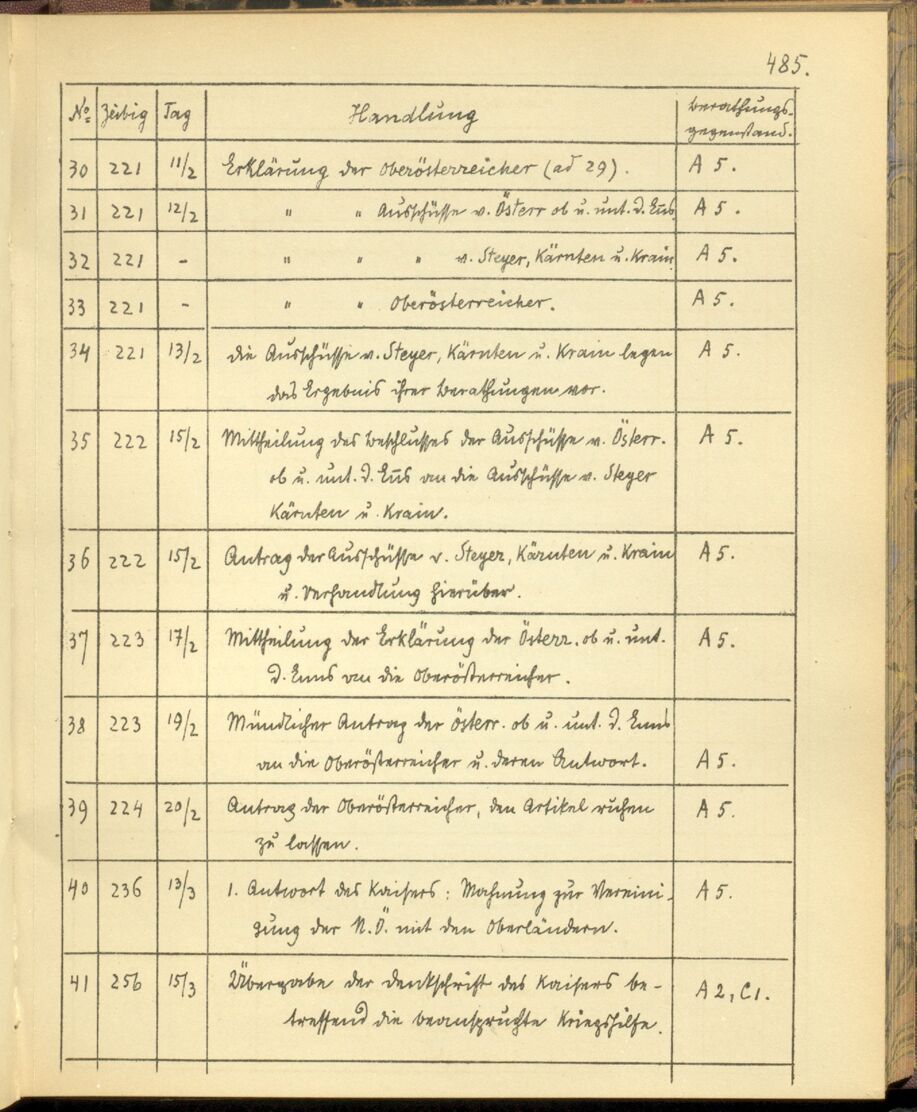 485.
No Zeibig Tag Handlung Berathungs-
gegenstand.
30 221 11/2 Erklärung der Oberösterreicher (ad 29). A 5.
31 221 12/2 " " Ausschüsse v. Österr ob u. unt. d. Eñs A 5.
32 221 - " " " v. Steyer, Kärnten u. Krain A 5.
33 221 - " " Oberösterreicher. A 5.
34 221 13/2 Die Ausschüsse v. Steyer, Kärnten u. Krain legen A 5.
das Ergebnis ihrer Berathungen vor.
35 222 15/2 Mittheilung des Beschlusses der Ausschüsse v. Österr. A 5.
ob u. unt. d. Eñs an die Ausschüsse v. Steyer
Kärnten u. Krain.
36 222 15/2 Antrag der Ausschüsse v. Steyer, Kärnten u. Krain A 5.
u. Verhandlung hierüber.
37 223 17/2 Mittheilung der Erklärung der Österr. ob u. unt. A 5.
d. Enns an die Oberösterreicher.
38 223 19/2 Mündlicher Antrag der Österr. ob u. unt. d. Enns
an die Oberösterreicher u. deren Antwort. A 5.
39 224 20/2 Antrag der Oberösterreicher, den Artikel ruhen A 5.
zu lassen.
40 236 13/3 1. Antwort des Kaisers: Mahnung zur Vereini- A 5.
gung der N.Ö. mit den Oberländern.
41 256 15/3 Übergabe der Denkschrift des Kaisers be- A 2, C 1.
treffend die beanspruchte Kriegshilfe.